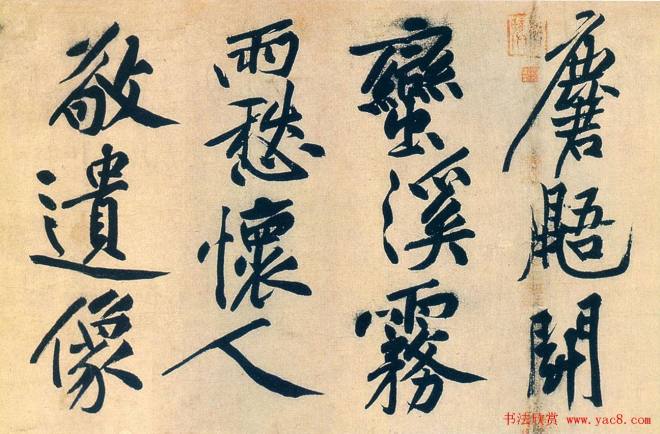 麏鼯鬥
蠻溪霧
雨愁懷人
敬遺像
书法欣赏 www.yac8.com